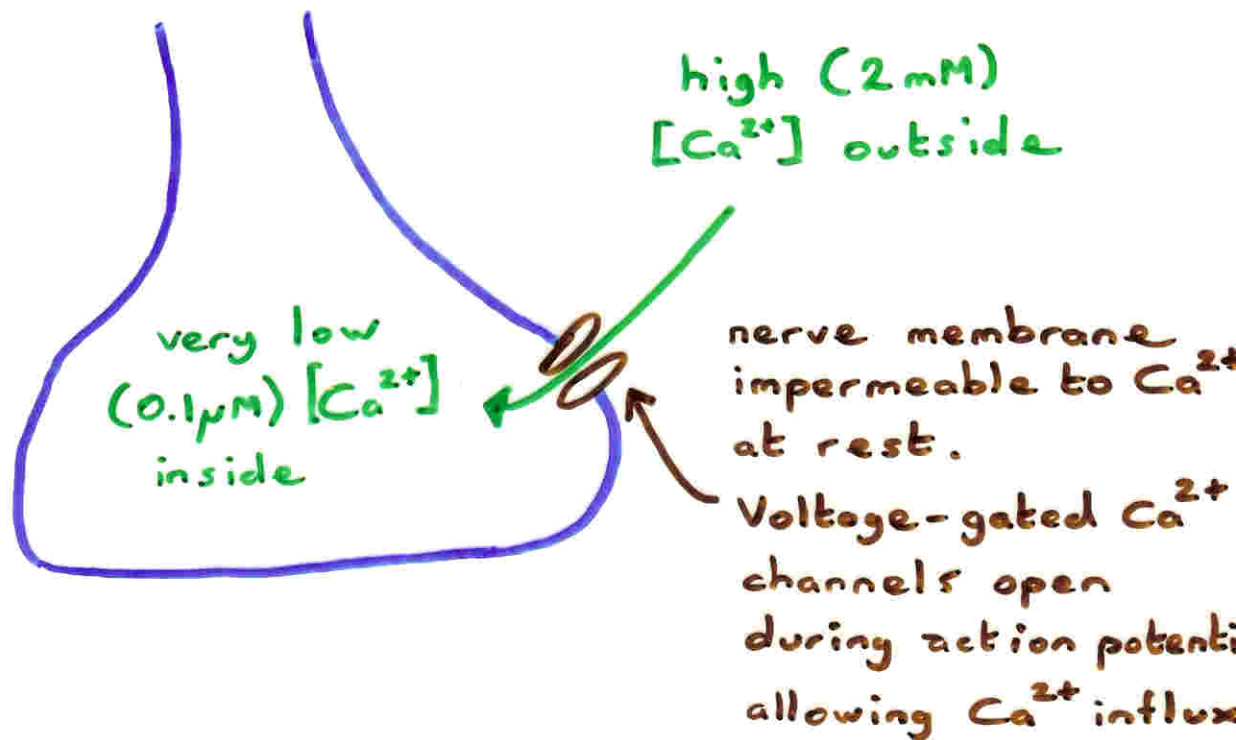 high (2mM)
[Ca²⁺] outside
very low
(0.1μM) [Ca²⁺]
inside
nerve membrane
impermeable to Ca²⁺
at rest.
Voltage-gated Ca²⁺
channels open
during action potenti
allowing Ca²⁺ influx